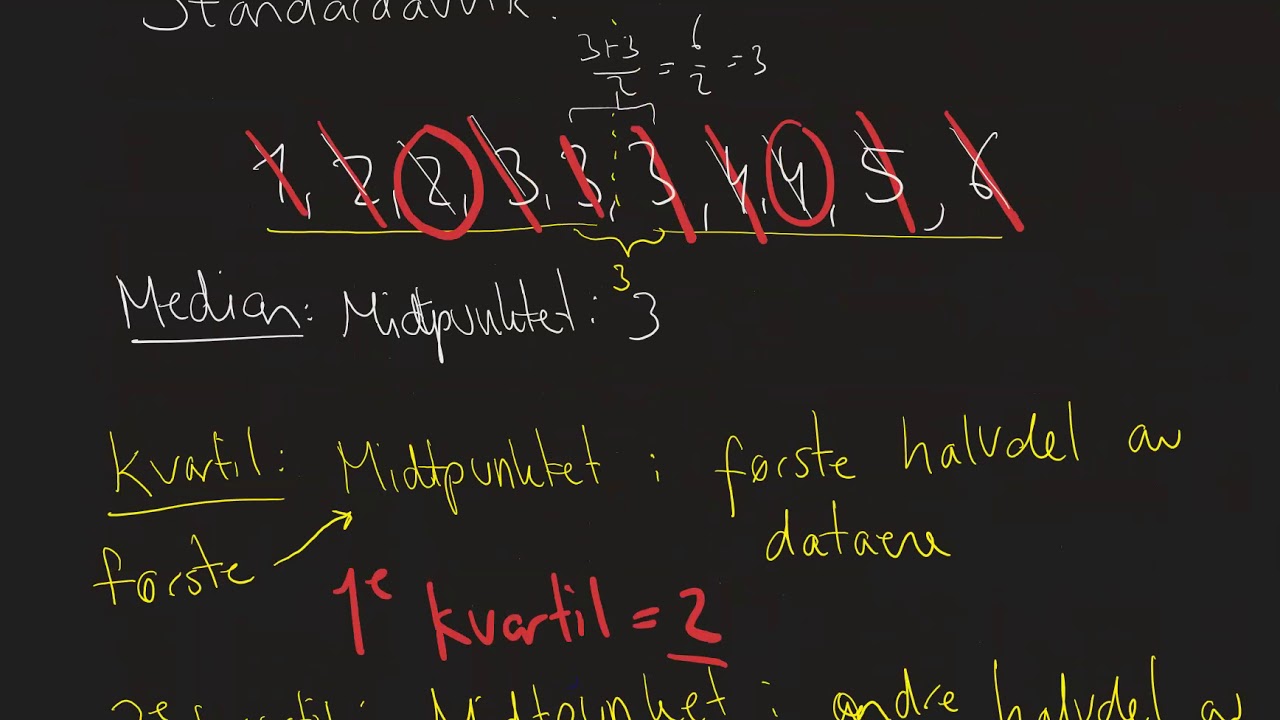 Standardavvik:
3+3/2 = 6/2 = 3
1, 2, 2, 3, 3, 3, 4, 4, 5, 6
3
Median: Midtpunktet: 3
Kvartil: Midtpunktet i første halvdel av
dataene
første
1e kvartil = 2
2e kvartil: Midtpunktet i andre halvdel av